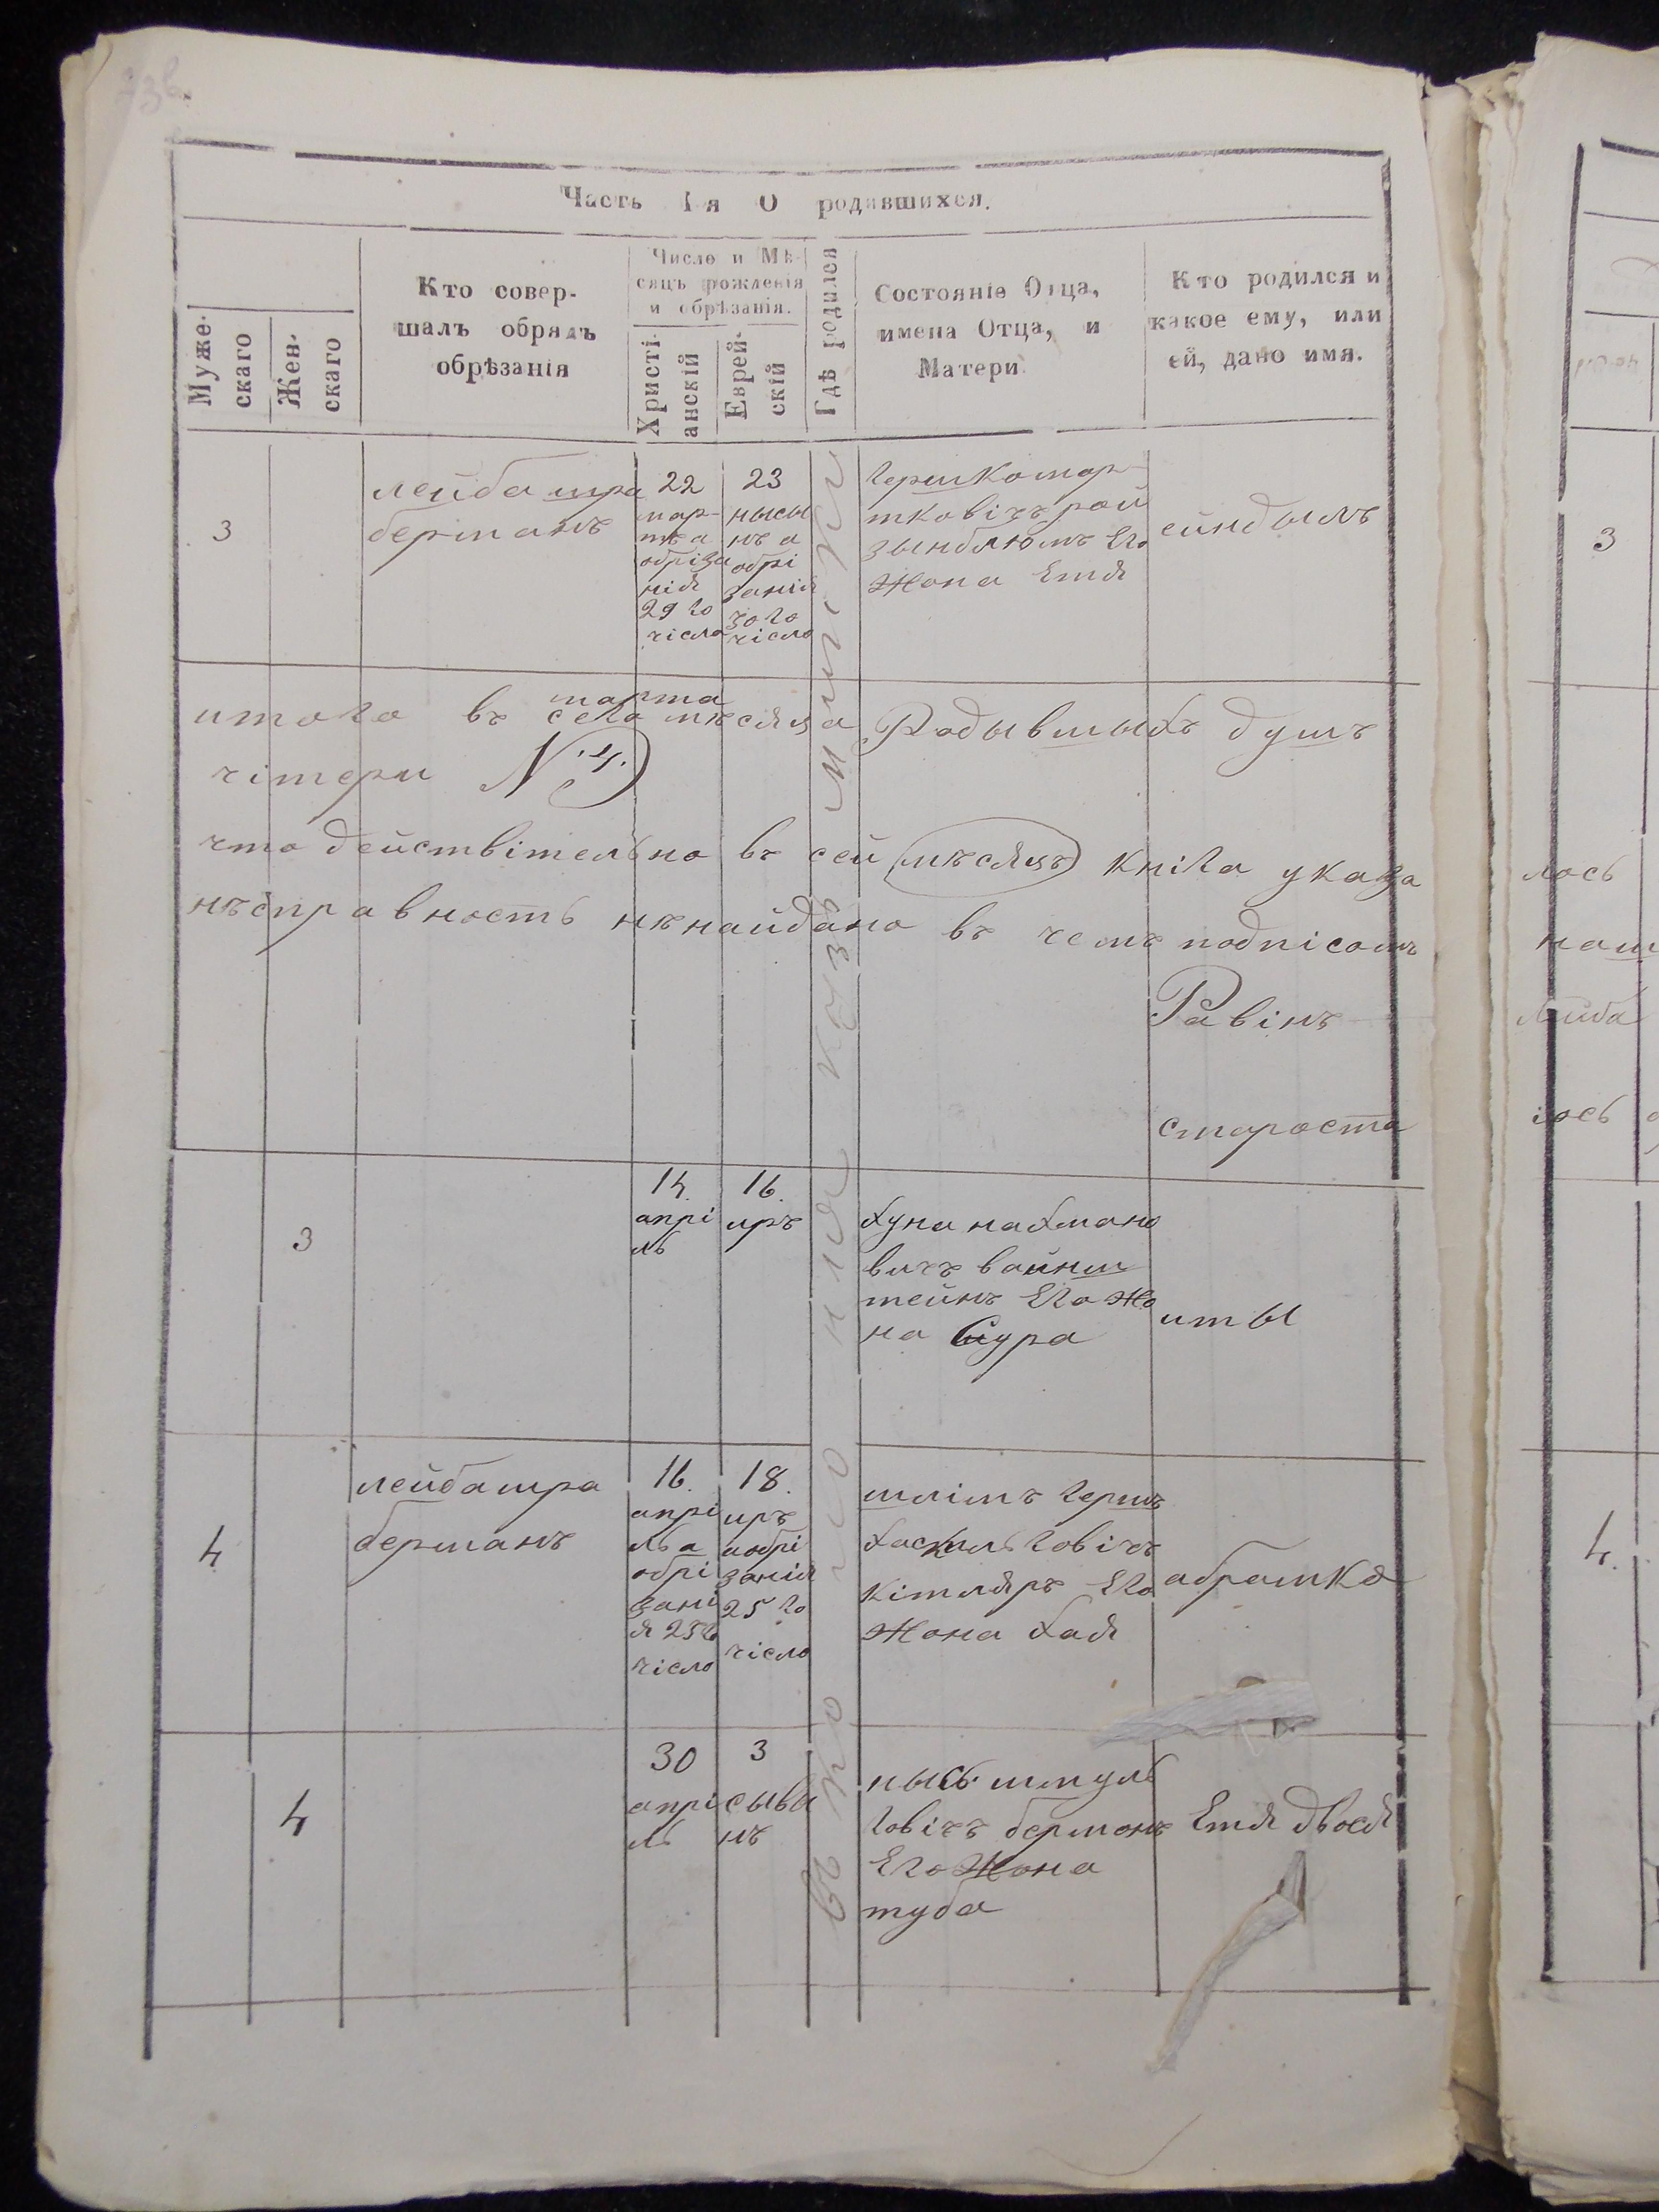 Часть 1-я О родившихся.
Муже-
скаго
Жен-
скаго
Кто совер-
шалъ обрядъ
обрѣзанія
Число и Мѣ-
сяцъ рожденія
и обрѣзанія.
Христі-
анскій
Еврей-
скій
Гдѣ родился
Состояніе Отца,
имена Отца, и
Матери
Кто родился и
какое ему, или
ей, дано имя.
3
лейба шра
берманъ
22
мар-
та а
обріза
нія
29 го
чісла
23
нысы
нъ а
обрі
занія
30 го
чісло
Гершко мор-
тковічъ рой
зынблюмъ Его
Жона Етя
ейндылъ
въ по
марта
итога въ сего мѣсяца Родывшыхъ душъ
чітери N 4.
что действітельно въ сей мѣсяцъ кніга указа
нѣсправность нѣнайдано въ чемъ подпісомъ
Равінъ
староста
3
14.
апрі
ль
16.
иръ
хуна нахмано
вичъ вайнш
тейнъ Его Жо
на Сура
иты
4
лейба шра
берманъ
16.
апрі
ль а
обрі
зані
я 23 го
чісло
18.
иръ
аобрі
занія
25 го
чісло
шлімъ Гершъ
хаскильговічъ
кітляръ Его
Жона хая
абрамко
4
30
апрі
ль
3
сыва
нъ
нысь шмуль
говічъ берманъ
Его Жона
туба
Етя двося
3
4.